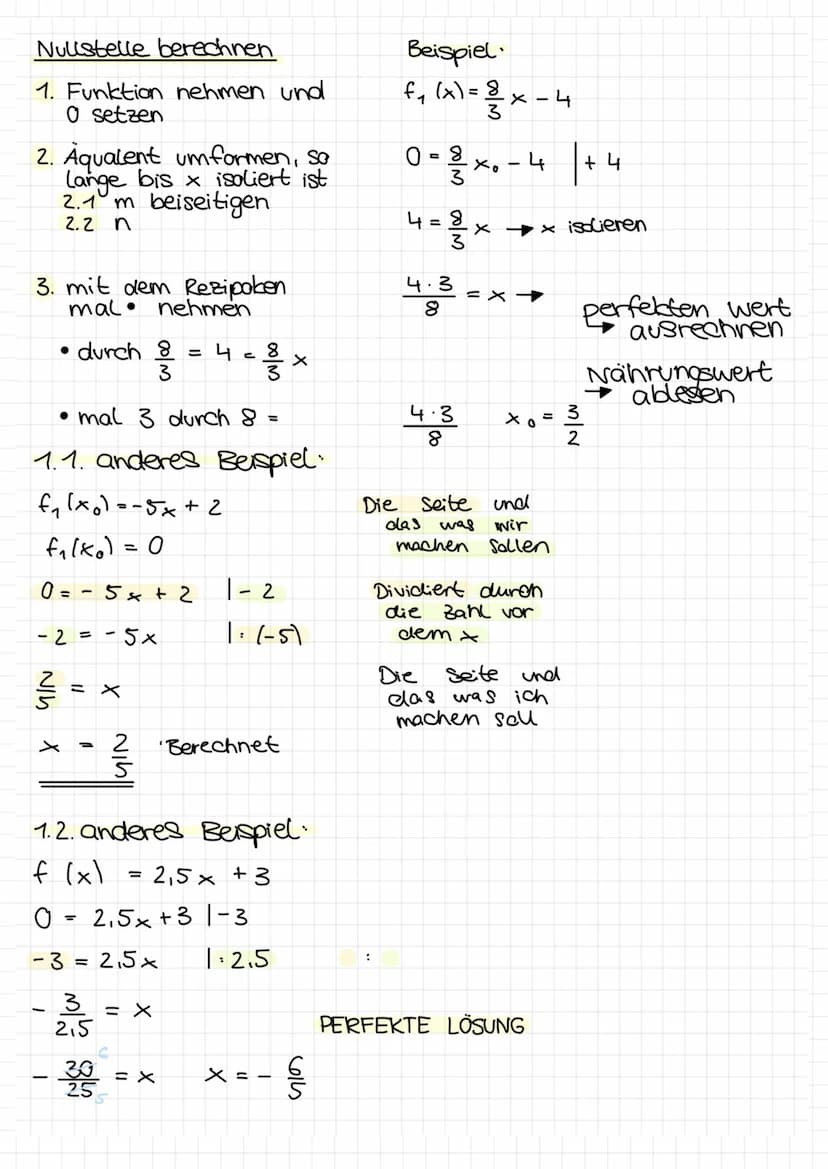 Nullstelle berechnen
1. Funktion nehmen und
0 setzen
2. Äqualent umformen, so
lange bis x isoliert ist
2.1 m beiseitigen
2.2 n
3. mit dem Rezipoken
mal • nehmen
• durch 8/3 = 4 = 8/3 x
• mal 3 durch 8 =
Beispiel:
f₁ (x) = 8/3 x - 4
0 = 8/3 x₀ - 4 | + 4
4 = 8/3 x → x isolieren
4·3/8 = x →
perfekten wert
↳ ausrechnen
Nährungswert
→ ablesen
4·3/8 x₀ = 3/2
1.1. anderes Beispiel:
f₁(x₀) = -5x + 2
f₁(x₀) = 0
0 = - 5x + 2 | - 2
-2 = - 5x | : (-5)
2/5 = x
x = 2/5 Berechnet
Die Seite und
das was wir
machen sollen
Dividiert durch
die Zahl vor
dem x
Die Seite und
das was ich
machen soll
1.2. anderes Beispiel:
f (x) = 2,5x + 3
0 = 2,5x + 3 | -3
-3 = 2,5x | : 2,5 :
- 3/2,5 = x
PERFEKTE LÖSUNG
- 30/25 = x 6 5 x = - 6/5